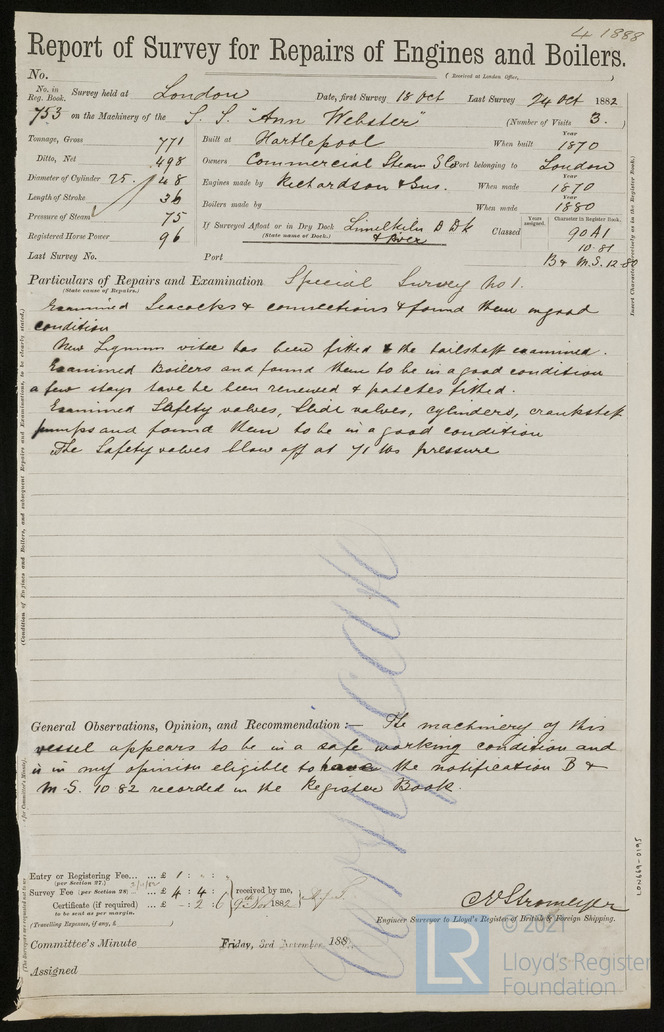 4 1888
Report of Survey for Repairs of Engines and Boilers.
No. (Received at London Office, )
No. in Reg. Book. Survey held at London Date, first Survey 18 Oct Last Survey 24 Oct 1882
753 on the Machinery of the S. S. "Ann Webster" (Number of Visits 3. )
Tonnage, Gross 771 Built at Hartlepool When built Year 1870
Ditto, Net 498 Owners Commercial Steam S Co Port belonging to London
Diameter of Cylinder 25. 48 Engines made by Richardson & Sons. When made Year 1870
Length of Stroke 36 Boilers made by When made Year 1880
Pressure of Steam 75 If Surveyed Afloat or in Dry Dock Limekiln D Dk
(State name of Dock.) & River
Classed Years assigned. Character in Register Book. 90 A1
Registered Horse Power 96 10-81
Last Survey No. Port B & M.S. 12-80
Insert Character precisely as in the Register Book.)
Particulars of Repairs and Examination Special Survey No 1.
(State cause of Repairs.)
Examined Seacocks & connections & found them in good
condition
New Lignum vitae has been fitted & the tailshaft examined.
Examined Boilers and found them to be in a good condition
a few stays have been renewed & patches fitted.
Examined Safety valves, Slide valves, cylinders, crankshaft
pumps and found them to be in a good condition
The Safety valves blow off at 71 lbs pressure
(Condition of Engines and Boilers, and subsequent Repairs and Examinations, to be clearly stated.)
General Observations, Opinion, and Recommendation :— The machinery of this
vessel appears to be in a safe working condition and
is in my opinion eligible to have the notification B &
M.S. 10 82 recorded in the Register Book.
Entry or Registering Fee... ... £ 1 : " : "
(per Section 27.)
Survey Fee (per Section 28) ... £ 4 : 4 : received by me,
Certificate (if required) ... £ - : 2 : 6 9th Nov 1882
to be sent as per margin.
(Travelling Expenses, if any, £ )
C Stromeyer
Engineer Surveyor to Lloyd's Register of British & Foreign Shipping.
Committee's Minute Friday, 3rd November, 188
Assigned
LON669-0195
© 2021
LR
Lloyd's Register
Foundation